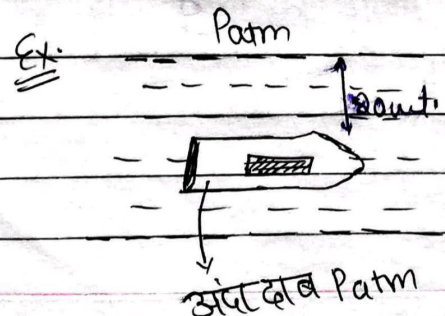 Patm
Ex.
20mt.
अंदर दाब Patm